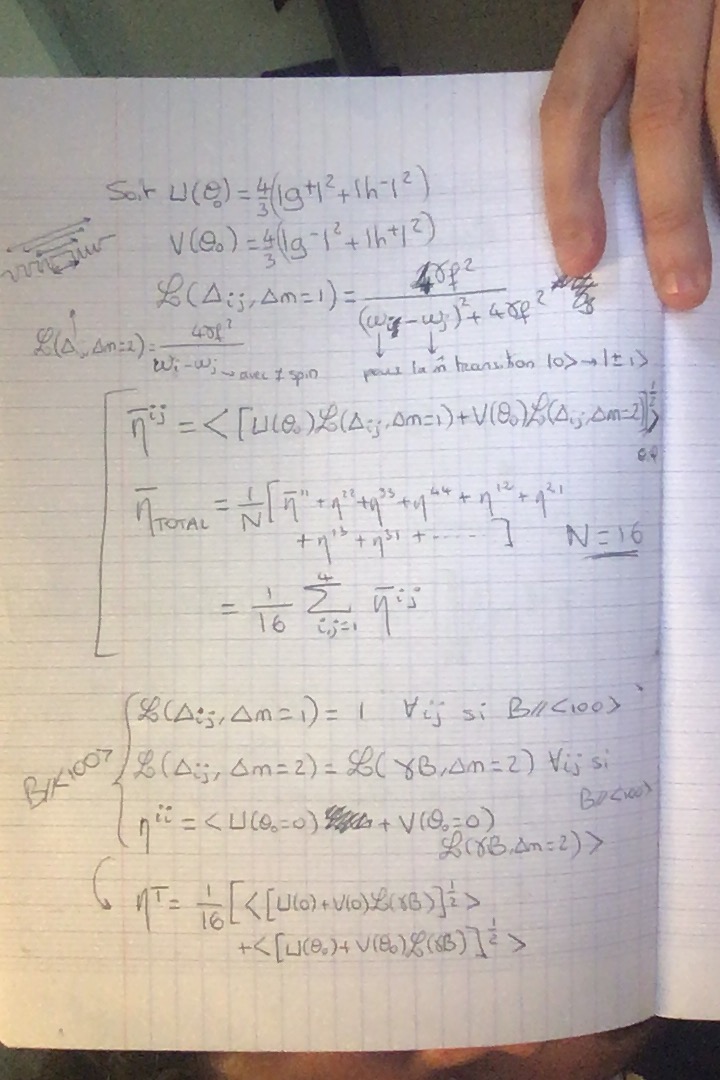 Soit U(θ₀) = 4/3 (|g+|² + |h-|²)
V(θ₀) = 4/3 (|g-|² + |h+|²)
ℒ(Δij, Δm=1) = 4γf² / ((ωi - ωj)² + 4γf²)
ℒ(Δ, Δm=2) = 4γf² / (ωi - ωj) → avec ≠ spin
pour la m̂ transition |0> → |±1>
η̄^ij = <[U(θ₀)ℒ(Δij, Δm=1) + V(θ₀)ℒ(Δij, Δm=2)]^1/2>
η̄TOTAL = 1/N [η̄^11 + η^22 + η^33 + η^44 + η^12 + η^21
+ η^13 + η^31 + ......] N = 16
= 1/16 Σ(i,j=1 → 4) η̄^ij
ℒ(Δij, Δm=1) = 1 ∀ij si B//<100>
B//<100>
ℒ(Δij, Δm=2) = ℒ(γB, Δm=2) ∀ij si
B//<100>
η^ii = <U(θ₀=0) + V(θ₀=0)
ℒ(γB, Δm=2)>
η^T = 1/16 [<[U(0) + V(0)ℒ(γB)]^1/2>
+ <[U(θ₀) + V(θ₀)ℒ(γB)]^1/2>